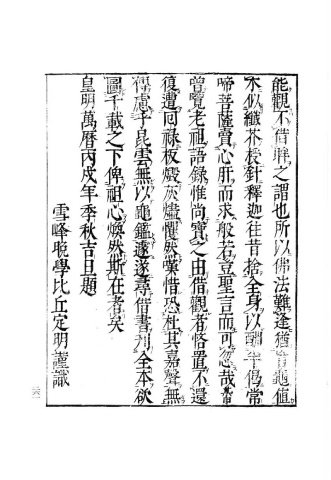 能觀不借眸之謂也所以佛法難逢猶盲龜值
木似纖芥投針釋迦往昔捨全身以酬半偈常
啼菩薩賣心肝而求般若豈聖言而可忽哉常
曾覽老祖語錄惟尚寶之由借觀者悋置不還
復遭回祿板燬灰燼懼然嘆惜恐杜其嘉聲無
得慮子昆雲無以龜鑑遂尋借書刊全本欲
圖千載之下俾祖心煥然斯在者矣
皇明萬曆丙戌年季秋吉旦題
雪峰晚學比丘定明謹識